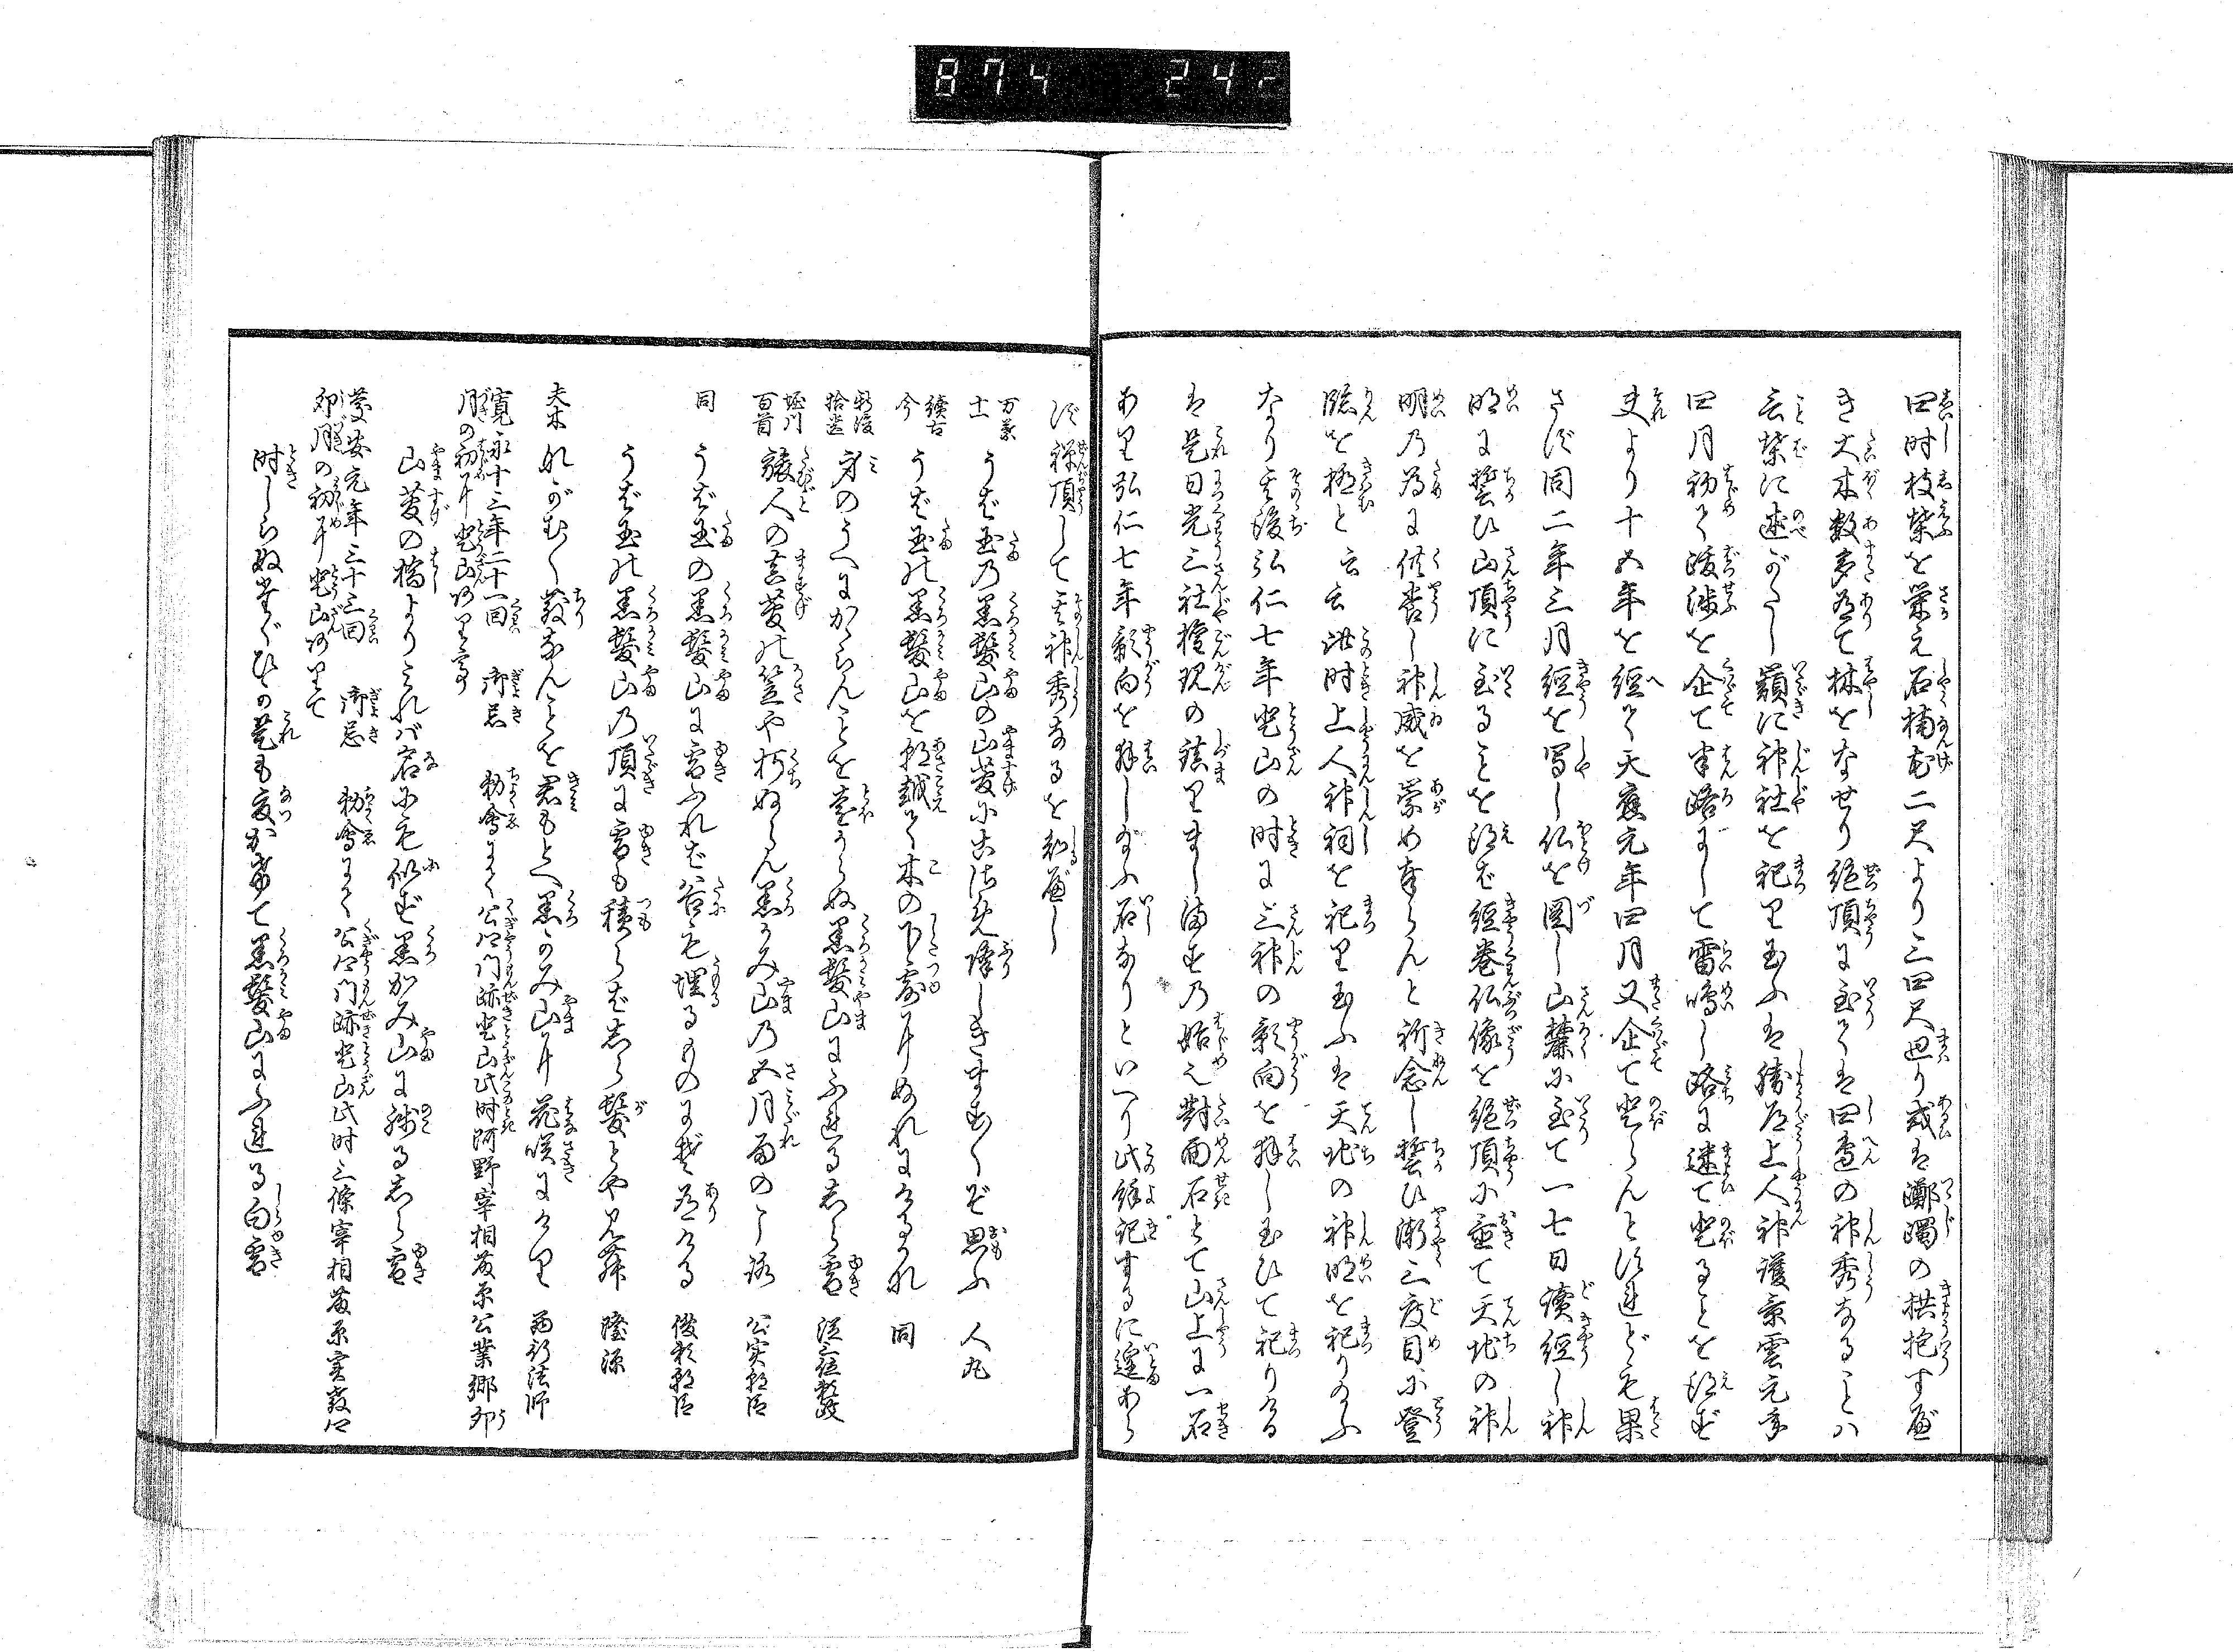 874 242
四時枝葉を栄え石楠花二尺より三四尺廻り或は躑躅の拱抱す至
き大木数多有て林をなせり絶頂に至ては四邊の神秀なることハ
言葉に述がたし嶺に神社を祀り玉ふは勝道上人神護景雲元年
四月初て跋渉を企て半路にして雷鳴し路に迷て登ることを得ず
夫より十五年を経て天應元年四月又企て登らんとすれども果
さず同二年三月經を写し仏を圖し山麓に至て一七日讀經し神
明に誓ひ山頂に至ることを得ば經巻仏像を絶頂に置て天地の神
明の為に供養し神威を崇め奉らんと祈念し誓ひ漸三度目に登
臨を極と云云此時上人神祠を祀り玉ふは天地の神明を祀り給ふ
なり其後弘仁七年登山の時に三神の影向を拝し玉ひて祀りける
は是日光三社權現の鎮りまし満せの始之對面石とて山上に一石
あり弘仁七年影向を拝し給ふ石なりといへり此餘記するに遑あら
ず禅頂して其神秀なるを知べし
万葉十一 うば玉の黒髪山の山菅に小雨ふり降しきますます思ふ 人丸
續古今 うば玉の黒髪山を朝越て木の下露にぬれにけるかな 同
新後拾遺 身のうへにかゝらんことを遠からぬ黒髪山にふれる志ら雪 従三位頼政
堀川百首 旅人の真菅の笠や朽ぬらん黒かみ山の五月雨のころ 公実朝臣
同 うば玉の黒髪山に雪ふれば谷も埋るゝものにぞ有ける 俊頼朝臣
うば玉の黒髪山の頂に雪も積らば志ら髪とや見舞 隆源
夫木 ながむながむ散なんことを君もとへ黒かみ山に花咲にけり 西行法師
寛永十三年二十一回 御忌 勅會にて公卿門跡登山此時阿野宰相藤原公業卿卯
月の初に登山ありて
山菅の橋よりみれバ名にも似ず黒かみ山に残る志ら雪
慶安元年三十三回 御忌 勅會にて公卿門跡登山此時三條宰相藤原実教卿
卯月の初に登山ありて
時しらぬたぐひか是も夏かけて黒髪山にふれる白雪